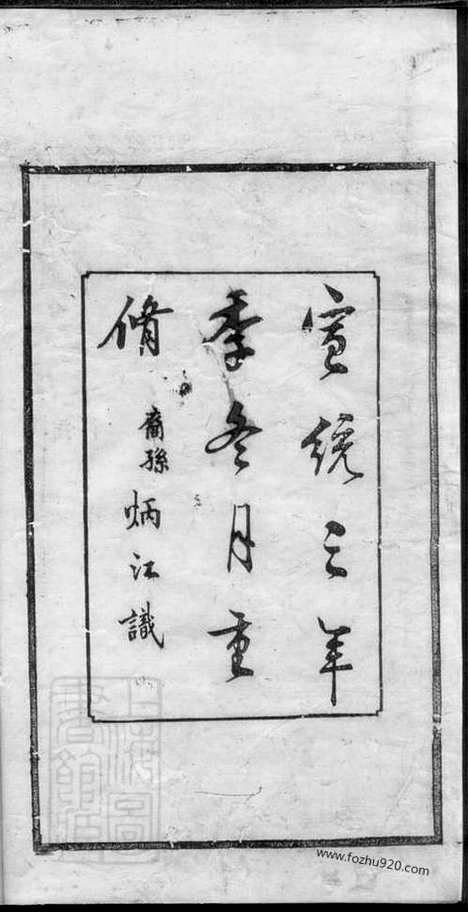 宣統三年
季冬月重
脩
裔孫炳江識
上海圖
書館藏
www.fozhu920.com